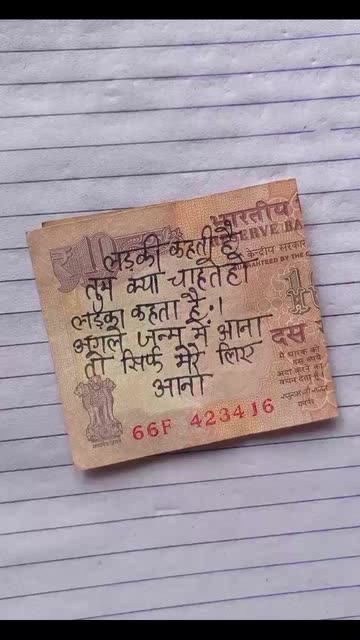 ₹10
भारतीय
RESERVE BA
केन्द्रीय सरकार
GUARANTEED BY THE C
लड़की कहती है
तुम क्या चाहते हो
लड़का कहता है.!
अगले जन्म में आना
तो सिर्फ मेरे लिए
आना
दस
मैं धारक को
दस रुपये
अदा करने का
वचन देता हूँ
66F 423416